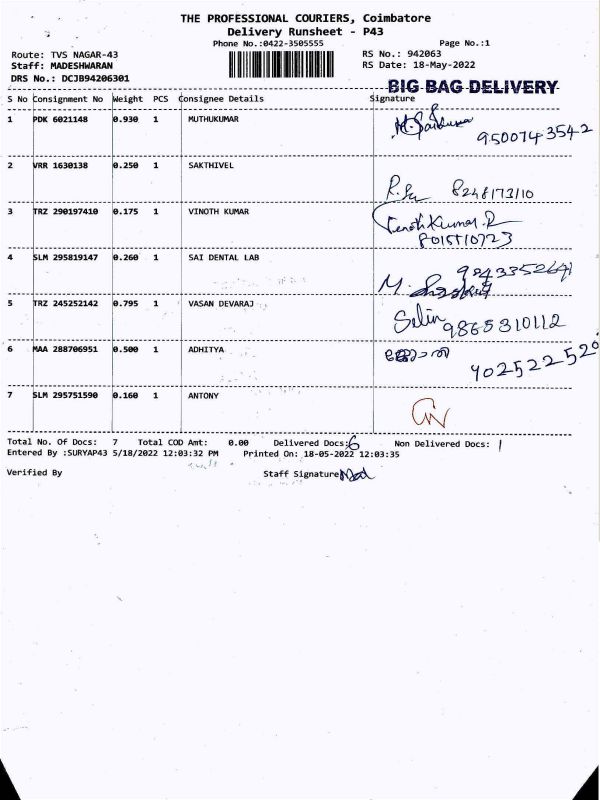 THE PROFESSIONAL COURIERS, Coimbatore
Delivery Runsheet - P43
Phone No.:0422-3505555
Page No.:1
Route: TVS NAGAR-43
RS No.: 942063
Staff: MADESHWARAN
RS Date: 18-May-2022
DRS No.: DCJB94206301
BIG BAG DELIVERY
S No Consignment No Weight PCS Consignee Details Signature
1 PDK 6021148 0.930 1 MUTHUKUMAR
9500743542
2 VRR 1630138 0.250 1 SAKTHIVEL
8248173110
3 TRZ 290197410 0.175 1 VINOTH KUMAR
Vinoth Kumar.R
4 SLM 295819147 0.260 1 SAI DENTAL LAB
5 TRZ 245252142 0.795 1 VASAN DEVARAJ
Selin 9865310112
6 MAA 288706951 0.500 1 ADHITYA
902522520
7 SLM 295751590 0.160 1 ANTONY
Total No. Of Docs: 7 Total COD Amt: 0.00 Delivered Docs: 6 Non Delivered Docs: 1
Entered By :SURYAP43 5/18/2022 12:03:32 PM Printed On: 18-05-2022 12:03:35
Verified By Staff Signature